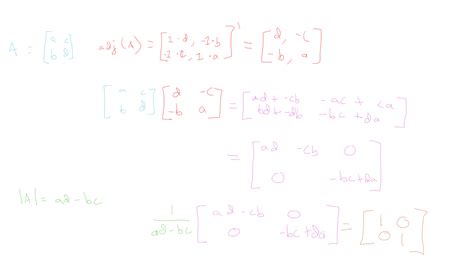 A = [a c; b d] adj(A) = [1·d, -1·b; -1·c, 1·a]ᵀ = [d, -c; -b, a]
[a c; b d] [d -c; -b a] = [ad + -cb -ac + ca; bd + -db -bc + da]
= [ad - cb 0; 0 -bc+da]
|A| = ad - bc
1/(ad-bc) [ad - cb 0; 0 -bc+da] = [1 0; 0 1]